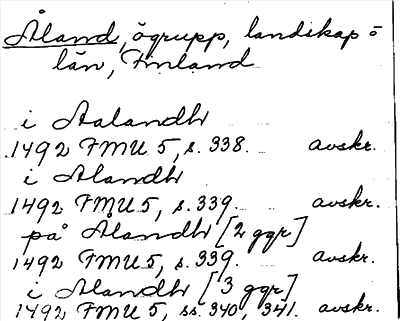 Åland, ögrupp, landskap o
län, Finland
i Aalandh
1492 FMU 5, s. 338. avskr.
i Alandh
1492 FMU 5, s. 339. avskr.
på Alandh [2 ggr]
1492 FMU 5, s. 339. avskr.
i Alandh [3 ggr]
1492 FMU 5, ss. 340, 341. avskr.